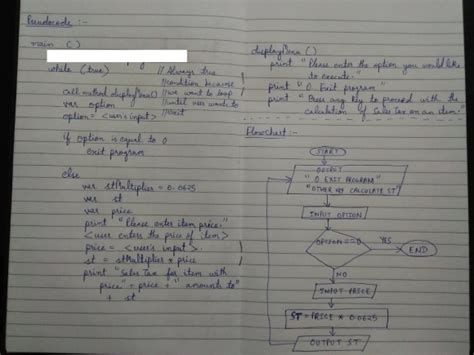 Pseudocode :-
main ()
while (true) // Always true
// condition because
call method displayMenu() // we want to loop
var option // until user wants to
option = <user's input> // exit
if option is equal to 0
Exit program
else
var stMultiplier = 0.0625
var st
var price
print "Please enter item price"
<user enters the price of item>
price = <user's input>
st = stMultiplier x price
print "Sales Tax for item with
price" + price + " amounts to"
+ st
displayMenu ()
print "Please enter the option you would like
to execute."
print "0. Exit program"
print "Press any key to proceed with the
calculation of Sales Tax on an item."
Flowchart :-
START
OUTPUT
"0 EXIT PROGRAM"
"OTHER KEY CALCULATE ST"
INPUT OPTION
OPTION==0
YES
END
NO
INPUT PRICE
ST = PRICE x 0.0625
OUTPUT ST